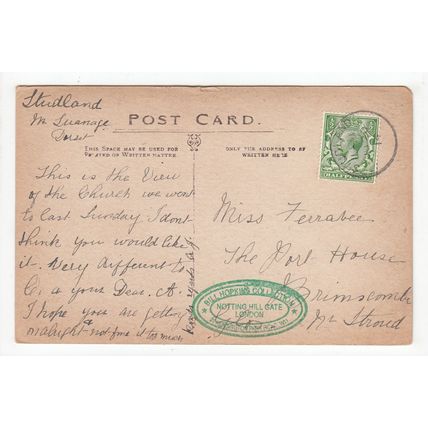 Studland
Nr Swanage
Dorset
POST CARD.
THIS SPACE MAY BE USED FOR
RELATED OR WRITTEN MATTER.
ONLY THE ADDRESS TO BE
WRITTEN HERE
HALFPENNY
This is the View
of the Church we went
to last Sunday. I dont
think you would like
it. Very different to
yours Dear. A.
I hope you are getting
alright not
Kind
Miss Ferrabee
The Port House
Brimscombe
Nr Stroud
Glos
BILL HOPKINS COLLECTION
NOTTING HILL GATE
LONDON
W11